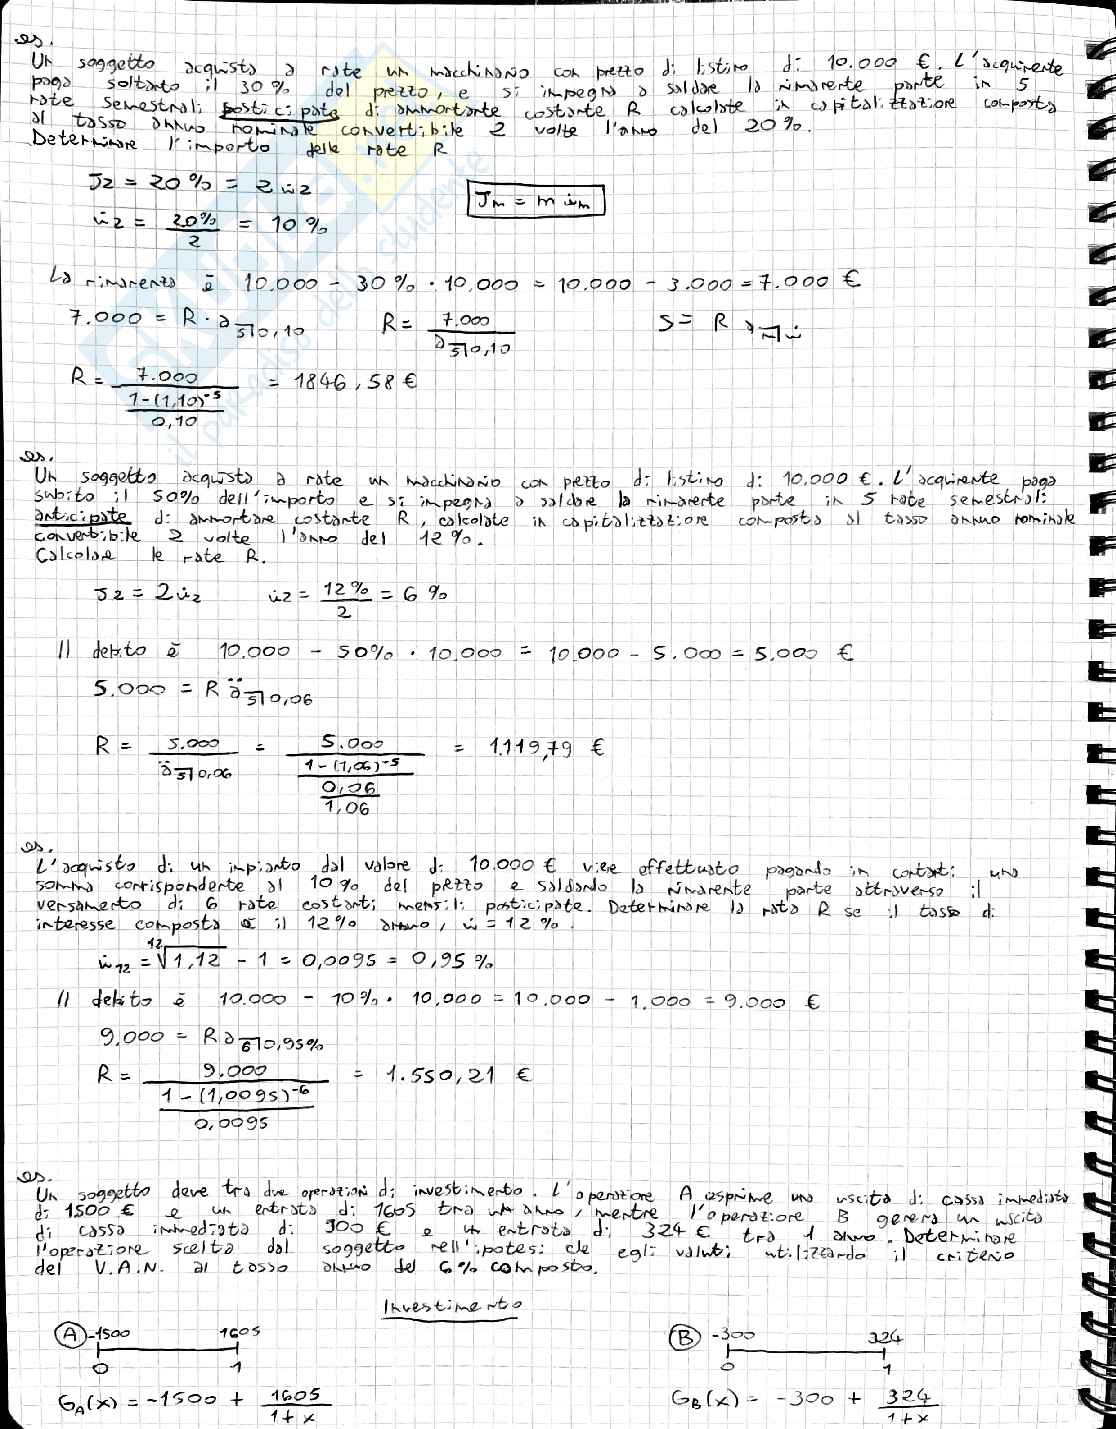 es.
Un soggetto acquista a rate un macchinario con prezzo di listino di 10.000 €. L'acquirente
paga soltanto il 30% del prezzo, e si impegna a saldare la rimanente parte in 5
rate semestrali posticipate di ammontante costante R calcolate in capitalizzazione composta
al tasso annuo nominale convertibile 2 volte l'anno del 20%.
Determinare l'importo delle rate R
J2 = 20% = 2 i2
Jm = m im
i2 = 20%/2 = 10%
La rimanenza è 10.000 - 30% · 10.000 = 10.000 - 3.000 = 7.000 €
7.000 = R · a5̅|0,10 R = 7.000/a5̅|0,10 S = R an̅|i
R = 7.000/((1-(1,10)^-5)/0,10) = 1846,58 €
es.
Un soggetto acquista a rate un macchinario con pezzo di listino di 10.000 €. L'acquirente paga
subito il 50% dell'importo e si impegna a saldare la rimanente parte in 5 rate semestrali
anticipate di ammontare costante R, calcolate in capitalizzazione composta al tasso annuo nominale
convertibile 2 volte l'anno del 12%.
Calcolare le rate R.
J2 = 2i2 i2 = 12%/2 = 6%
Il debito è 10.000 - 50% · 10.000 = 10.000 - 5.000 = 5.000 €
5.000 = R ä5̅|0,06
R = 5.000/ä5̅|0,06 = 5.000/((1-(1,06)^-5)/(0,06/1,06)) = 1.119,79 €
es.
L'acquisto di un impianto dal valore di 10.000 € viene effettuato pagando in contanti una
somma corrispondente al 10% del prezzo e saldando la rimanente parte attraverso il
versamento di 6 rate costanti mensili posticipate. Determinare la rata R se il tasso di
interesse composta è il 12% annuo, i = 12%.
i12 = ¹²√1,12 - 1 = 0,0095 = 0,95%
Il debito è 10.000 - 10% · 10.000 = 10.000 - 1.000 = 9.000 €
9.000 = R a6̅|0,95%
R = 9.000/((1-(1,0095)^-6)/0,0095) = 1.550,21 €
es.
Un soggetto deve tra due operazioni di investimento. L'operazione A esprime una uscita di cassa immediata
di 1500 € e un entrata di 1605 tra un anno, mentre l'operazione B genera un uscita
di cassa immediata di 300 € e un entrata di 324 € tra 1 anno. Determinare
l'operazione scelta dal soggetto nell'ipotesi che egli valuti utilizzando il criterio
del V.A.N. al tasso annuo del 6% composto.
Investimento
A -1500 1605 B -300 324
0 1 0 1
GA(x) = -1500 + 1605/(1+x) GB(x) = -300 + 324/(1+x)